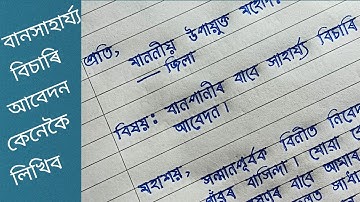 বানসাহাৰ্য্য
বিচাৰি
আবেদন
কেনেকৈ
লিখিব
প্ৰতি,
মাননীয় উপায়ুক্ত মহোদয়
— জিলা
বিষয়: বানপানীৰ বাবে সাহাৰ্য্য বিচাৰি
আবেদন।
মহাশয়,
সন্মানপূৰ্বক বিনীত নিবেদন
গাঁৱৰ বাসিন্দা। যোৱা
বাবে আমাৰ